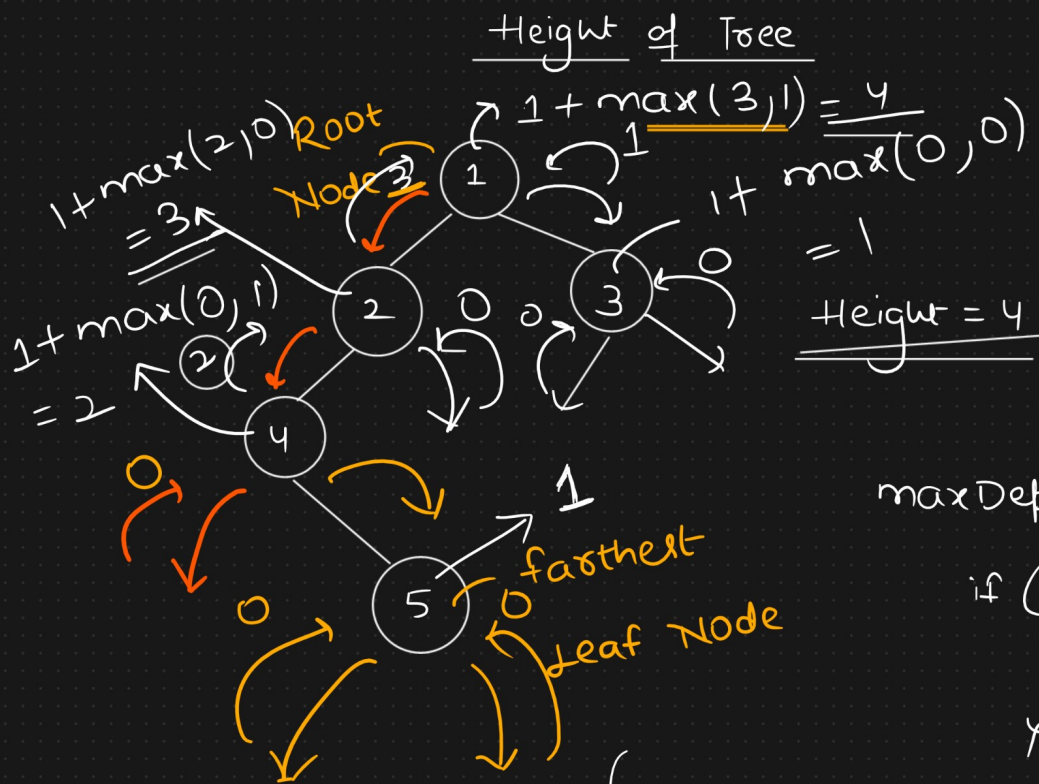 Height of Tree
1 + max(3,1) = 4
1+max(2,0)
= 3
Root
Node
3
1
1
1+ max(0,0)
= 1
2
0
0
3
0
Height = 4
1+max(0,1)
= 2
2
4
0
1
maxDep
if (
5
farthest
Leaf Node
0
0